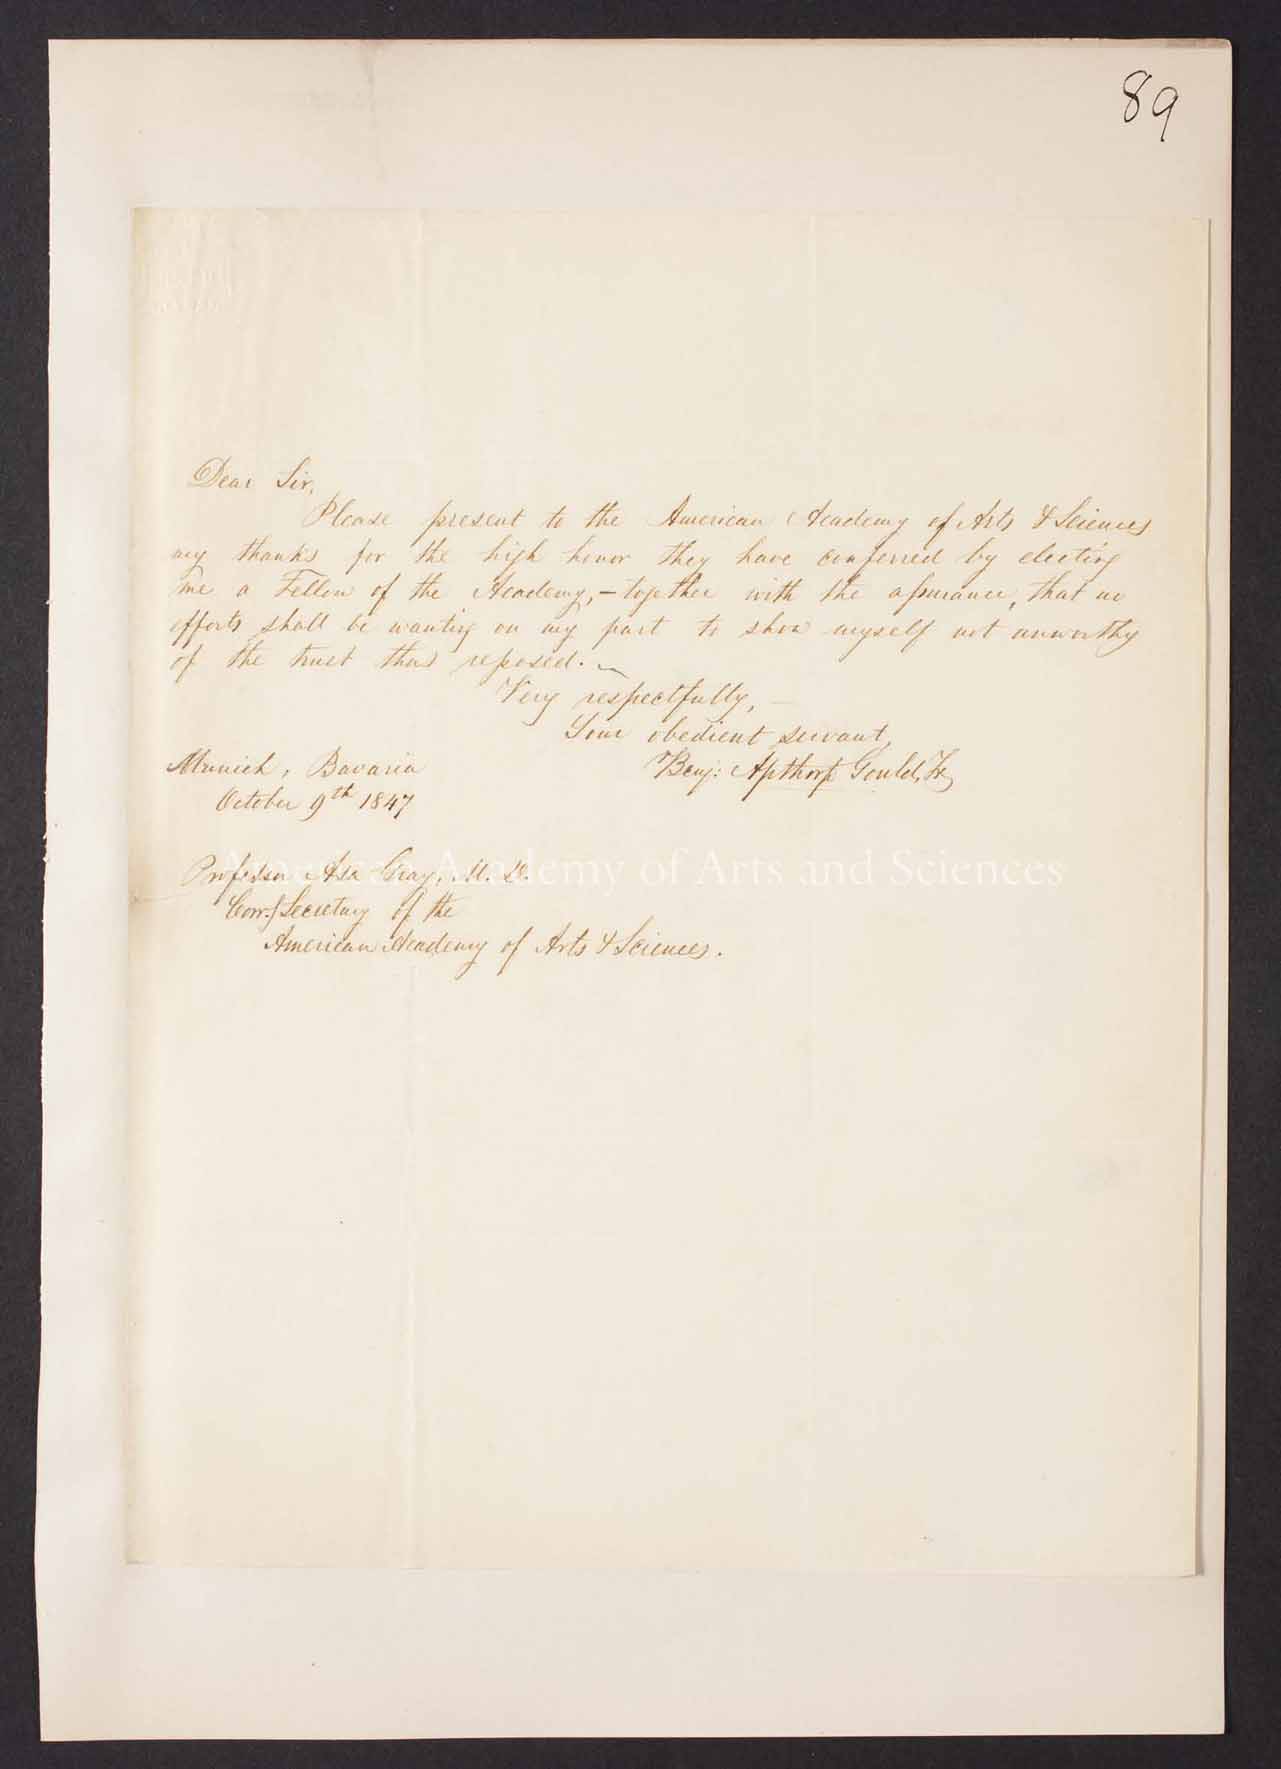 89
Dear Sir,
Please present to the American Academy of Arts & Sciences
my thanks for the high honor they have conferred by electing
me a Fellow of the Academy, – together with the assurance, that no
efforts shall be wanting on my part to show myself not unworthy
of the trust thus reposed. ~
Very respectfully, –
Your obedient servant,
Benj: Apthorp Gould, Jr.
Munich, Bavaria
October 9th 1847
American Academy of Arts and Sciences
Professor Asa Gray, M. D.
Corr. Secretary of the
American Academy of Arts & Sciences.